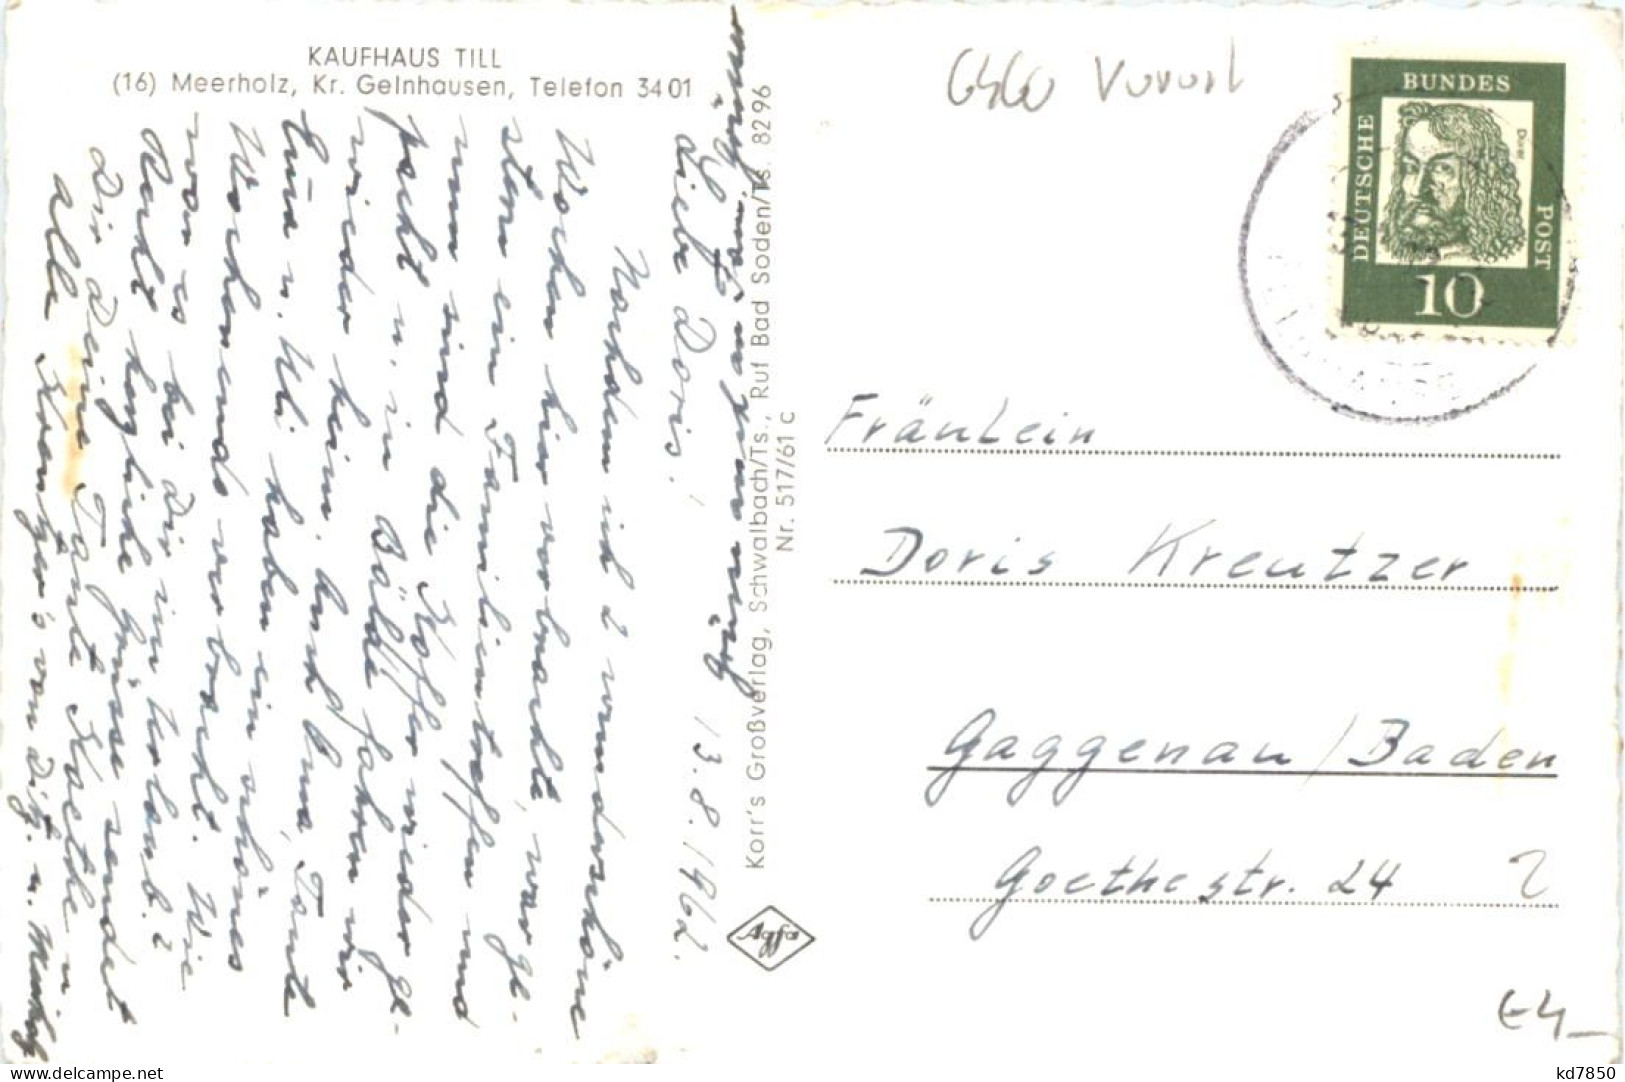 KAUFHAUS TILL
(16) Meerholz, Kr. Gelnhausen, Telefon 3401
13.8.1962.
Liebe Doris!
Nachdem ich 2 wunderschöne
Wochen hier verbrachte, war ge-
stern ein Familientreffen und
nun sind die Koffer wieder ge-
packt u. in Bälde fahren wir
wieder heim. Auch Oma, Tante
Erna u. Uli haben ein schönes
Wochenende verbracht. Wie
war es bei Dir im Urlaub?
Recht herzliche Grüsse sendet
Dir Deine Tante Käthe u.
alle Kreutzer's von u.
Korr's Großverlag, Schwalbach/Ts., Ruf Bad Soden/Ts. 8296
Nr. 517/61 c
Agfa
6460 Vorort
DEUTSCHE BUNDES POST
Dürer
10
Fräulein
Doris Kreutzer
Gaggenau / Baden
Goethestr. 24
www.delcampe.net
kd7850